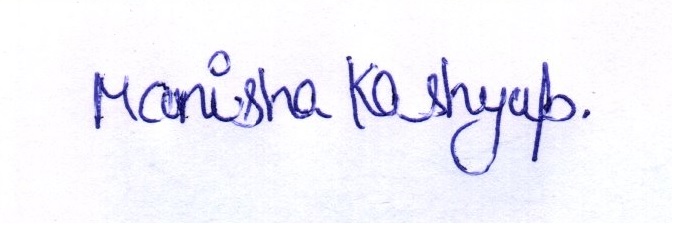 Manisha Kashyap.